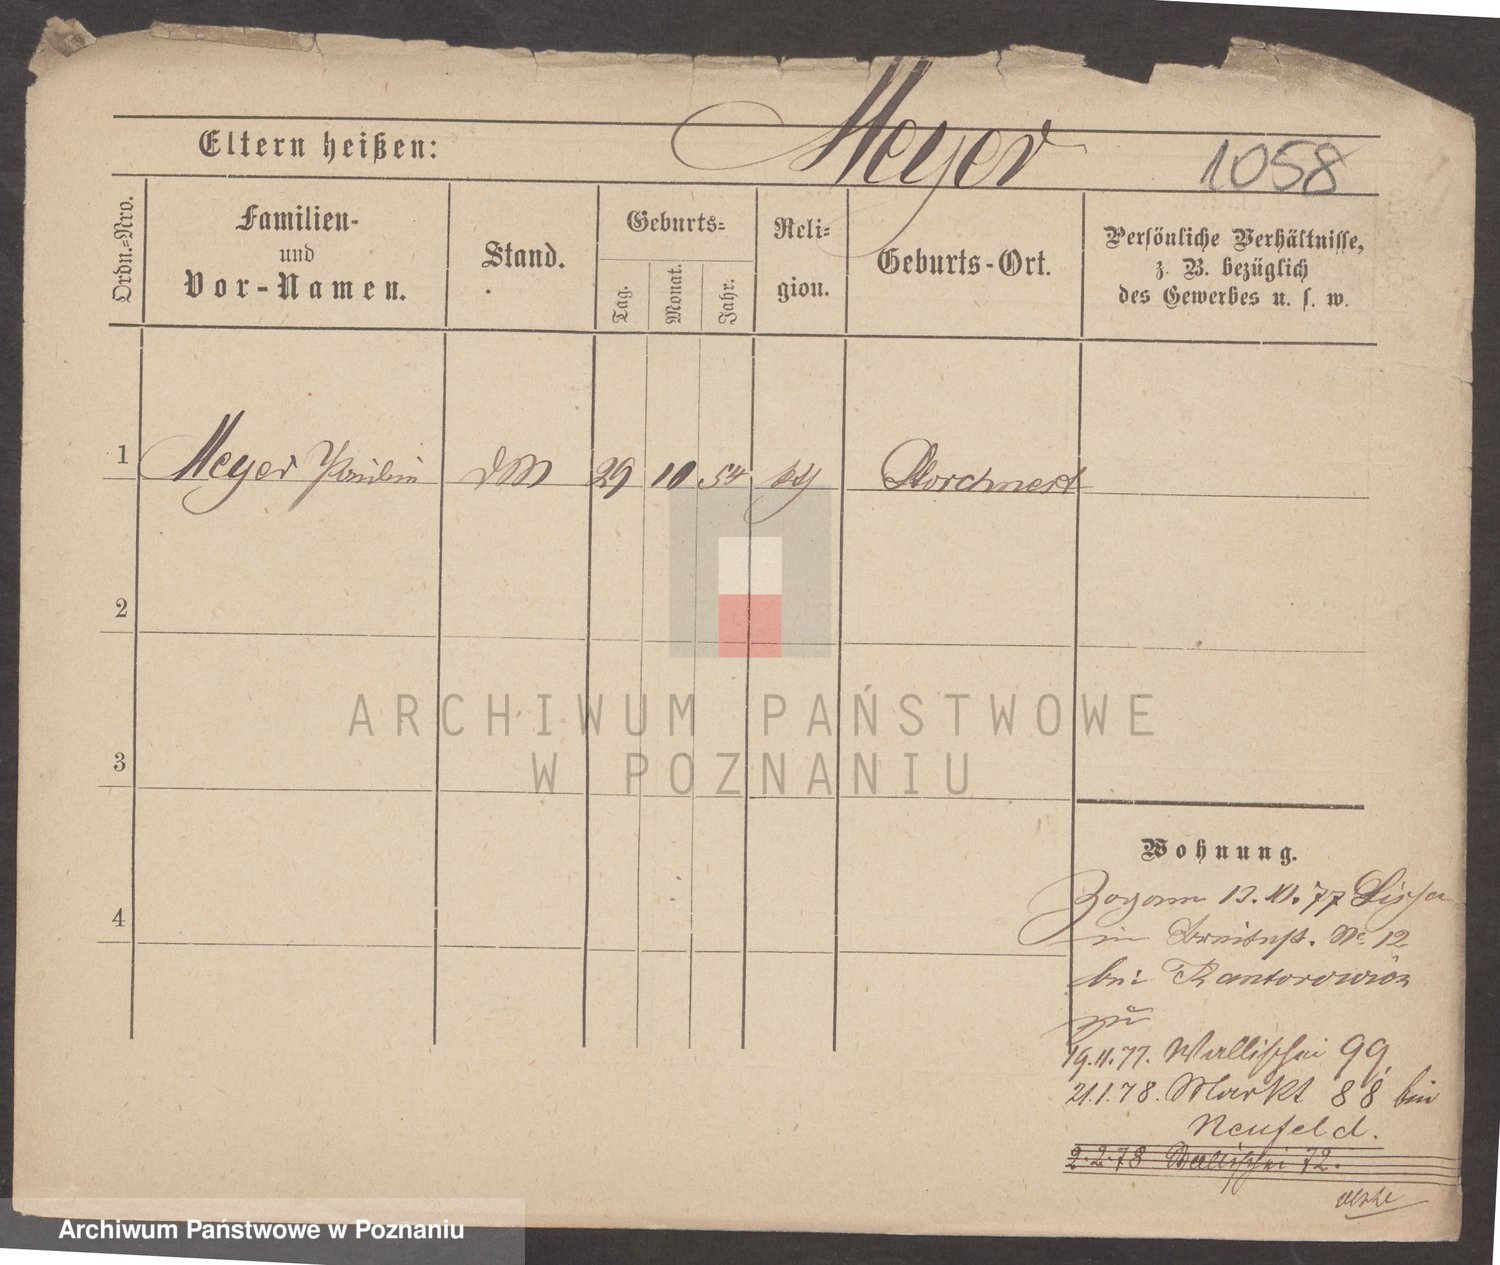 Eltern heißen: Meyer 1058
Ordn.=Nro.
Familien-
und
Vor-Namen.
Stand.
Geburts=
Tag.
Monat.
Jahr.
Reli=
gion.
Geburts-Ort.
Persönliche Verhältnisse,
z. B. bezüglich
des Gewerbes u. s. w.
1 Meyer DM 29 10 54
2
3
4
Wohnung.
13. 11. 77 Lissa
in Breitestr. No 12
bei Kantorowicz
zu
19.11.77. Wallischei 99.
21.1.78. Markt 88 bei
Neufeld.
2.2.78 Wallischei 72.
ARCHIWUM PAŃSTWOWE
W POZNANIU
Archiwum Państwowe w Poznaniu